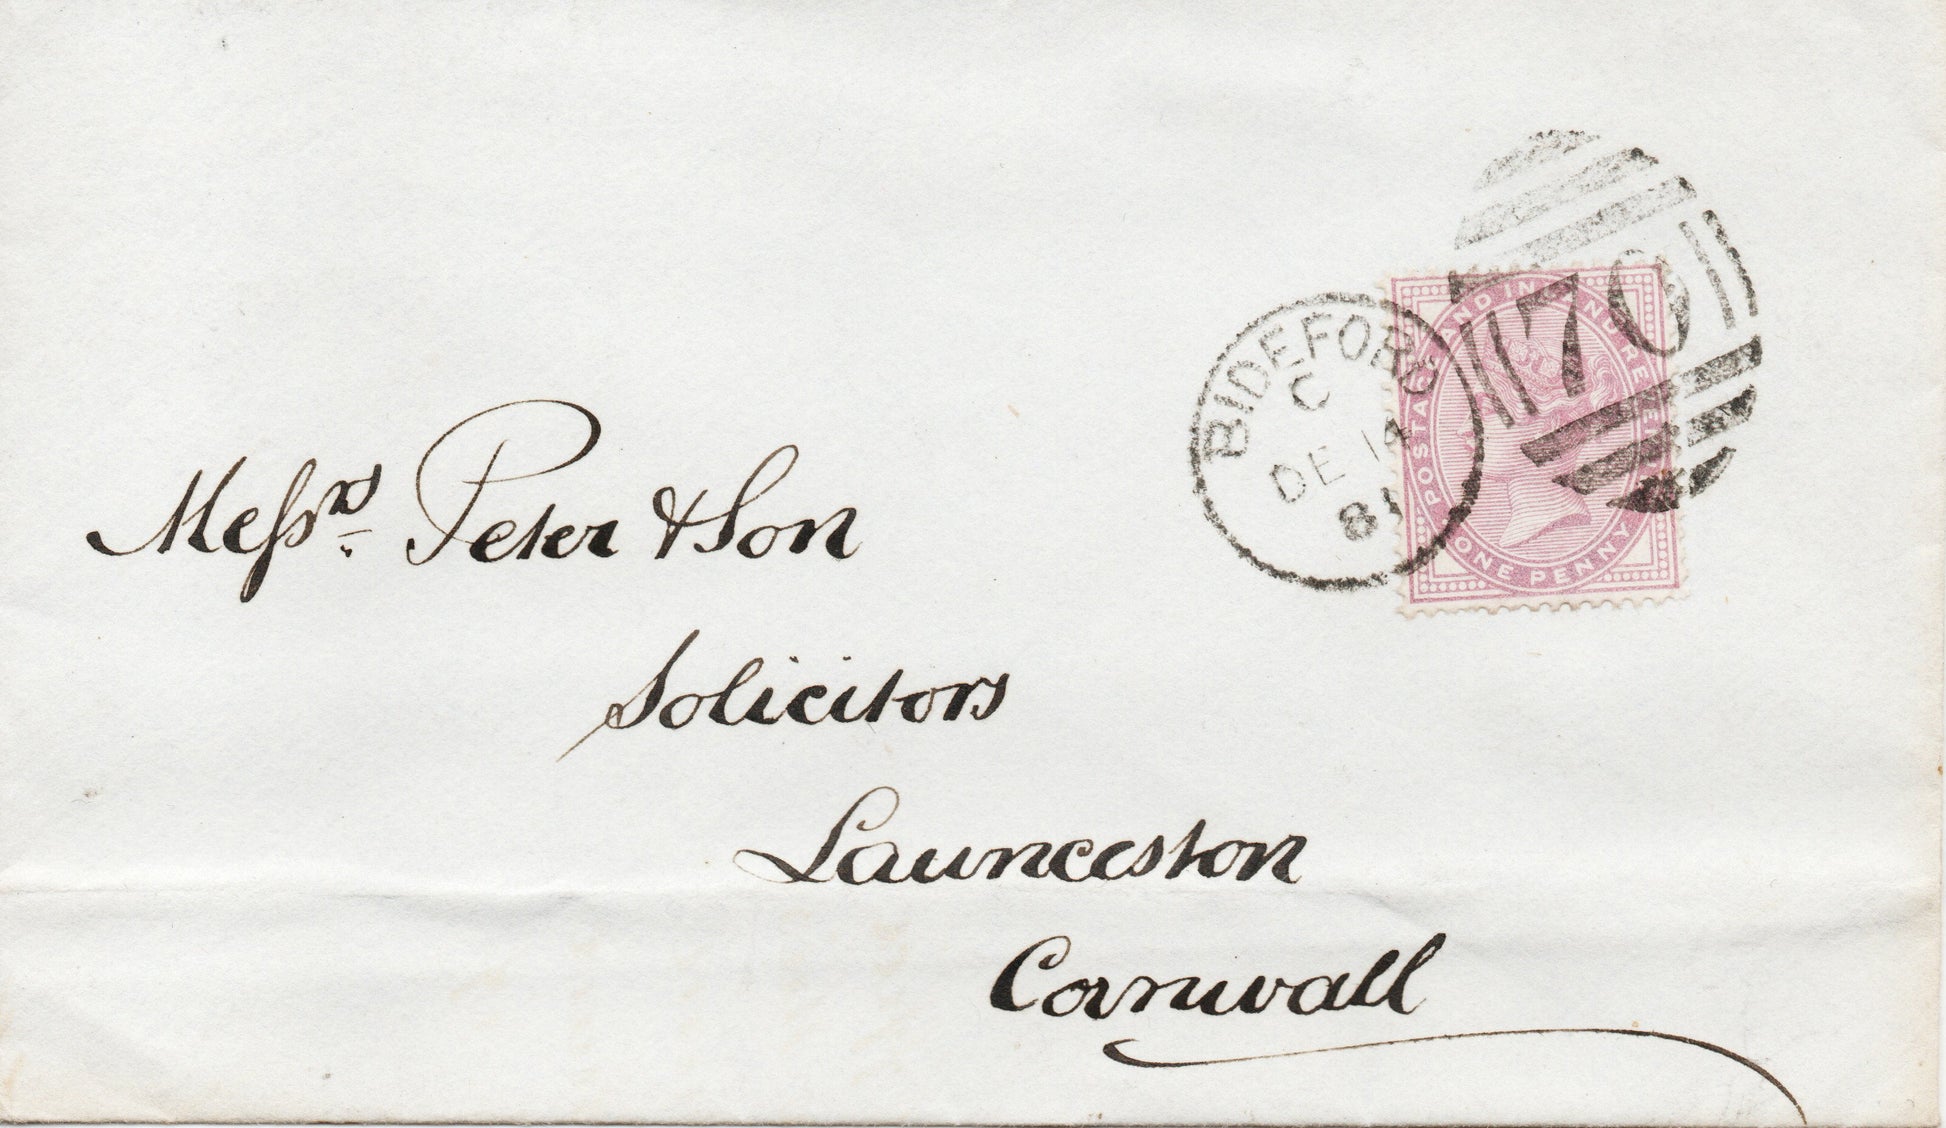 BIDEFORD
C
DE 14
81
70
POSTAGE AND INLAND REVENUE
ONE PENNY
Messrs Peter & Son
Solicitors
Launceston
Cornwall